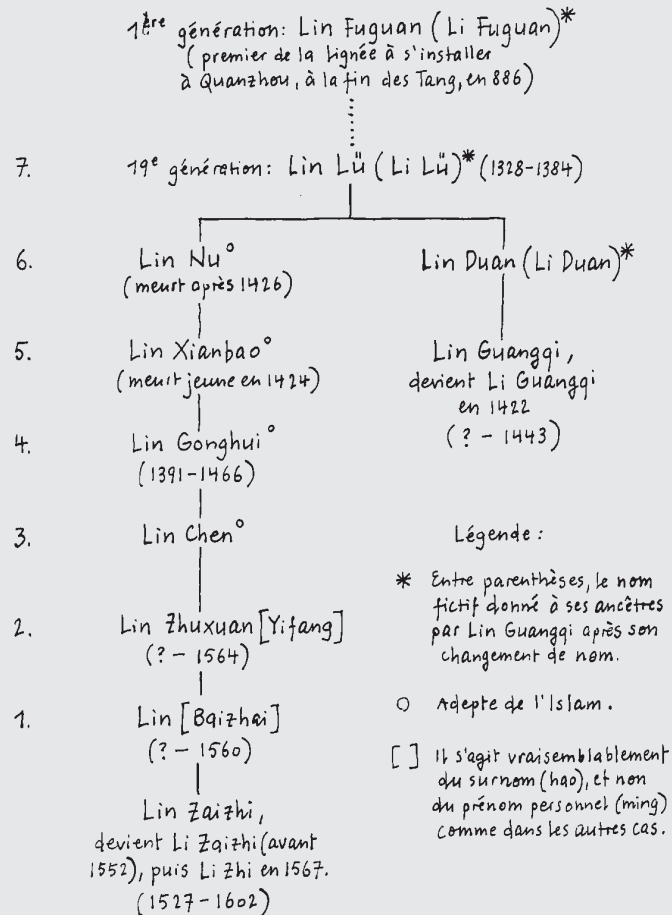 1ère génération: Lin Fuguan (Li Fuguan)*
(premier de la lignée à s'installer
à Quanzhou, à la fin des Tang, en 886)
7. 19e génération: Lin Lü (Li Lü)* (1328-1384)
6. Lin Nu° Lin Duan (Li Duan)*
(meurt après 1426)
5. Lin Xianbao° Lin Guangqi,
(meurt jeune en 1424) devient Li Guangqi
en 1422
4. Lin Gonghui° (? - 1443)
(1391-1466)
3. Lin Chen°
2. Lin Zhuxuan [Yifang]
(? - 1564)
1. Lin [Baizhai]
(? - 1560)
Lin Zaizhi,
devient Li Zaizhi (avant
1552), puis Li Zhi en 1567.
(1527-1602)
Légende:
* Entre parenthèses, le nom
fictif donné à ses ancêtres
par Lin Guangqi après son
changement de nom.
○ Adepte de l'Islam.
[ ] Il s'agit vraisemblablement
du surnom (hao), et non
du prénom personnel (ming)
comme dans les autres cas.